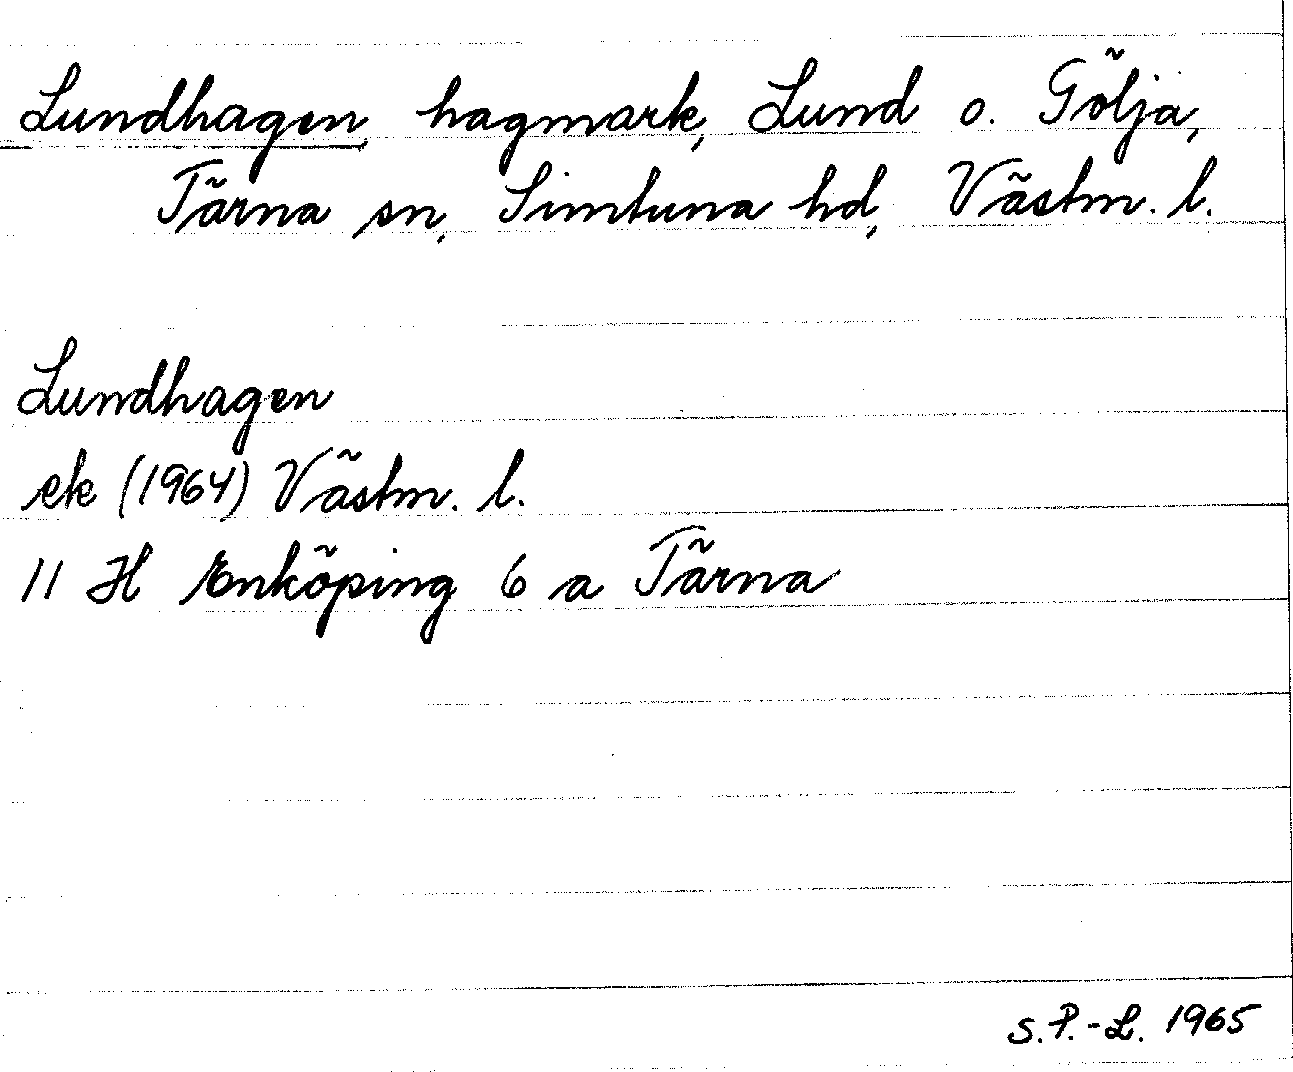 Lundhagen, hagmark, Lund o. Gölja,
Tärna sn, Simtuna hd, Västm. l.
Lundhagen
ek (1964) Västm. l.
11 H Enköping 6 a Tärna
S.P.-L. 1965